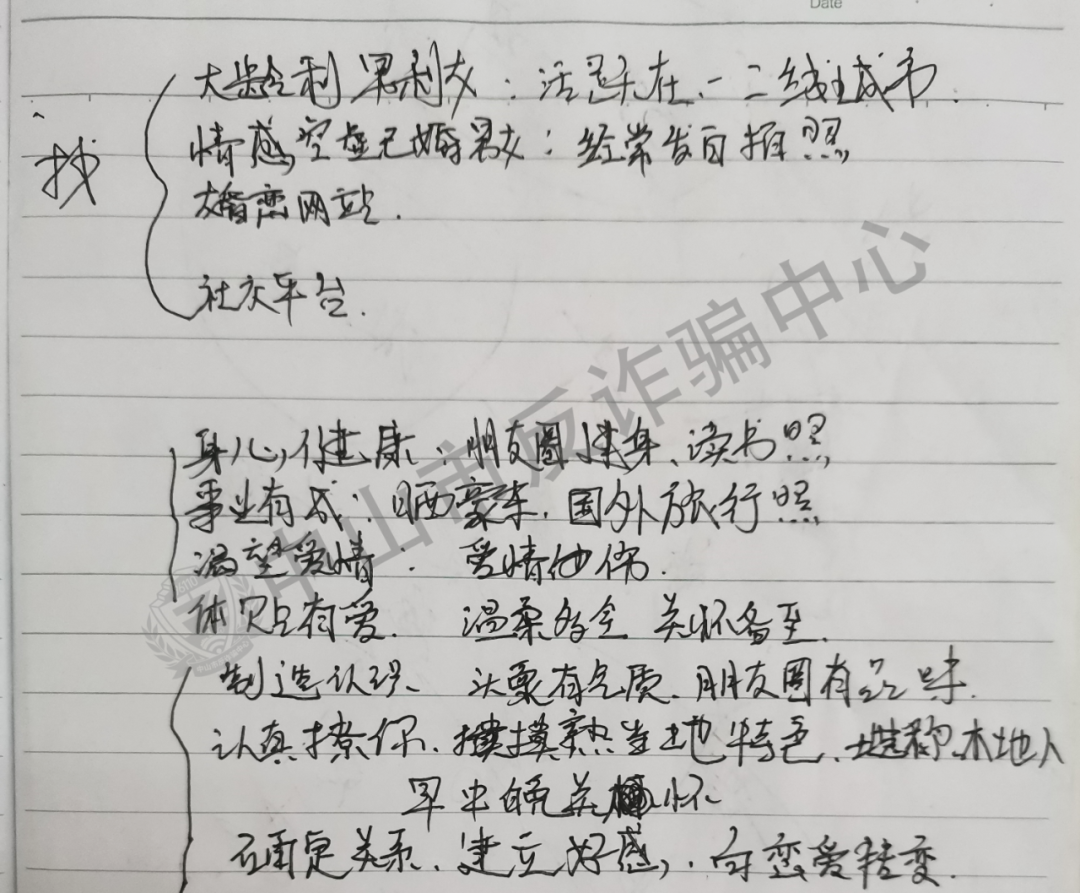 Date
找
大龄剩男剩女：活跃在一二线城市.
情感空虚已婚男女：经常发自拍照
婚恋网站.
社交平台.
身心健康：朋友圈健身、读书照
事业有成：晒豪车、国外旅行照
渴望爱情： 爱情
体贴有爱. 温柔多金 关怀备至.
制造认识、 头像有气质、朋友圈有品味.
认真撩你、摸熟当地特色、谎称本地人
早中晚关怀
确定关系、建立好感、向恋爱转变.
中山市反诈骗中心